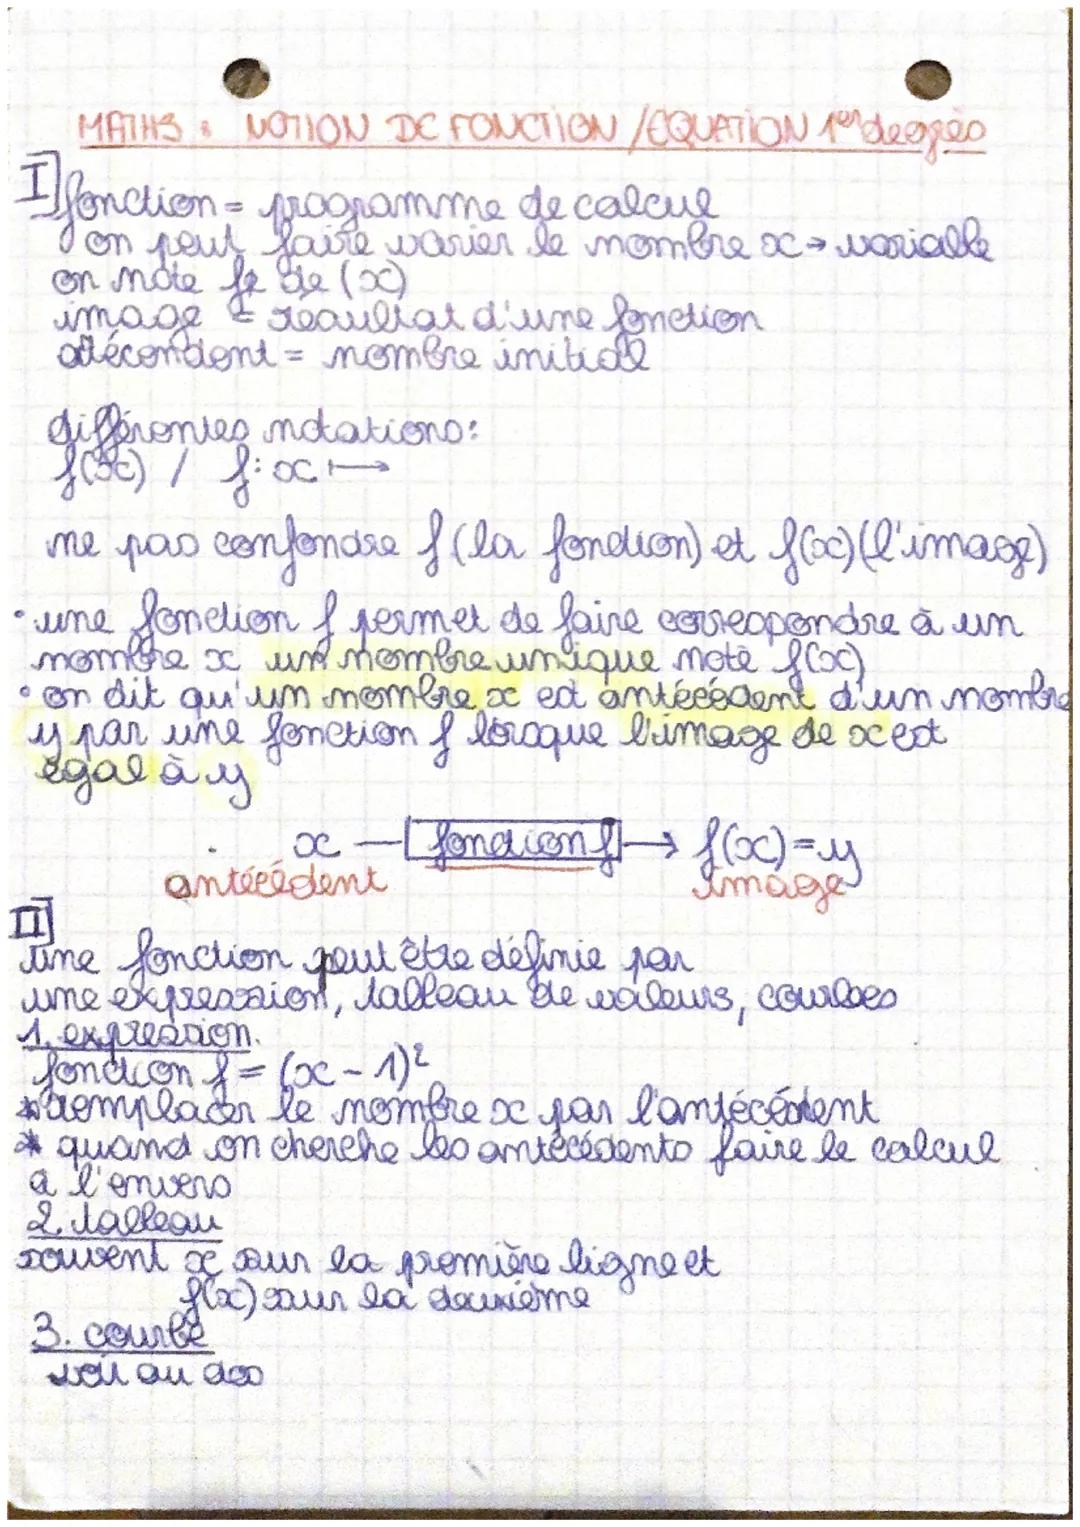 MATHS : NOTION DE FONCTION / EQUATION 1er degrés
I] fonction = programme de calcul
on peut faire varier le nombre x → variable
on note f de (x)
image = résultat d'une fonction
attécendent = nombre initial
différentes notations :
f(x) / f : x ⟼
ne pas confondre f (la fonction) et f(x) (l'image)
• une fonction f permet de faire correspondre à un
nombre x un nombre unique noté f(x)
• on dit qu'un nombre x est antécédent d'un nombre
y par une fonction f lorsque l'image de x est
égal à y
x — fonction f → f(x) = y
antécédent image
II]
une fonction peut être définie par
une expression, tableau de valeurs, courbes
1. expression.
fonction f = (x - 1)²
* remplacer le nombre x par l'antécédent
* quand on cherche les antécédents faire le calcul
à l'envers
2. tableau
souvent x sur la première ligne et
f(x) sur la deuxième
3. courbe
voir au dos